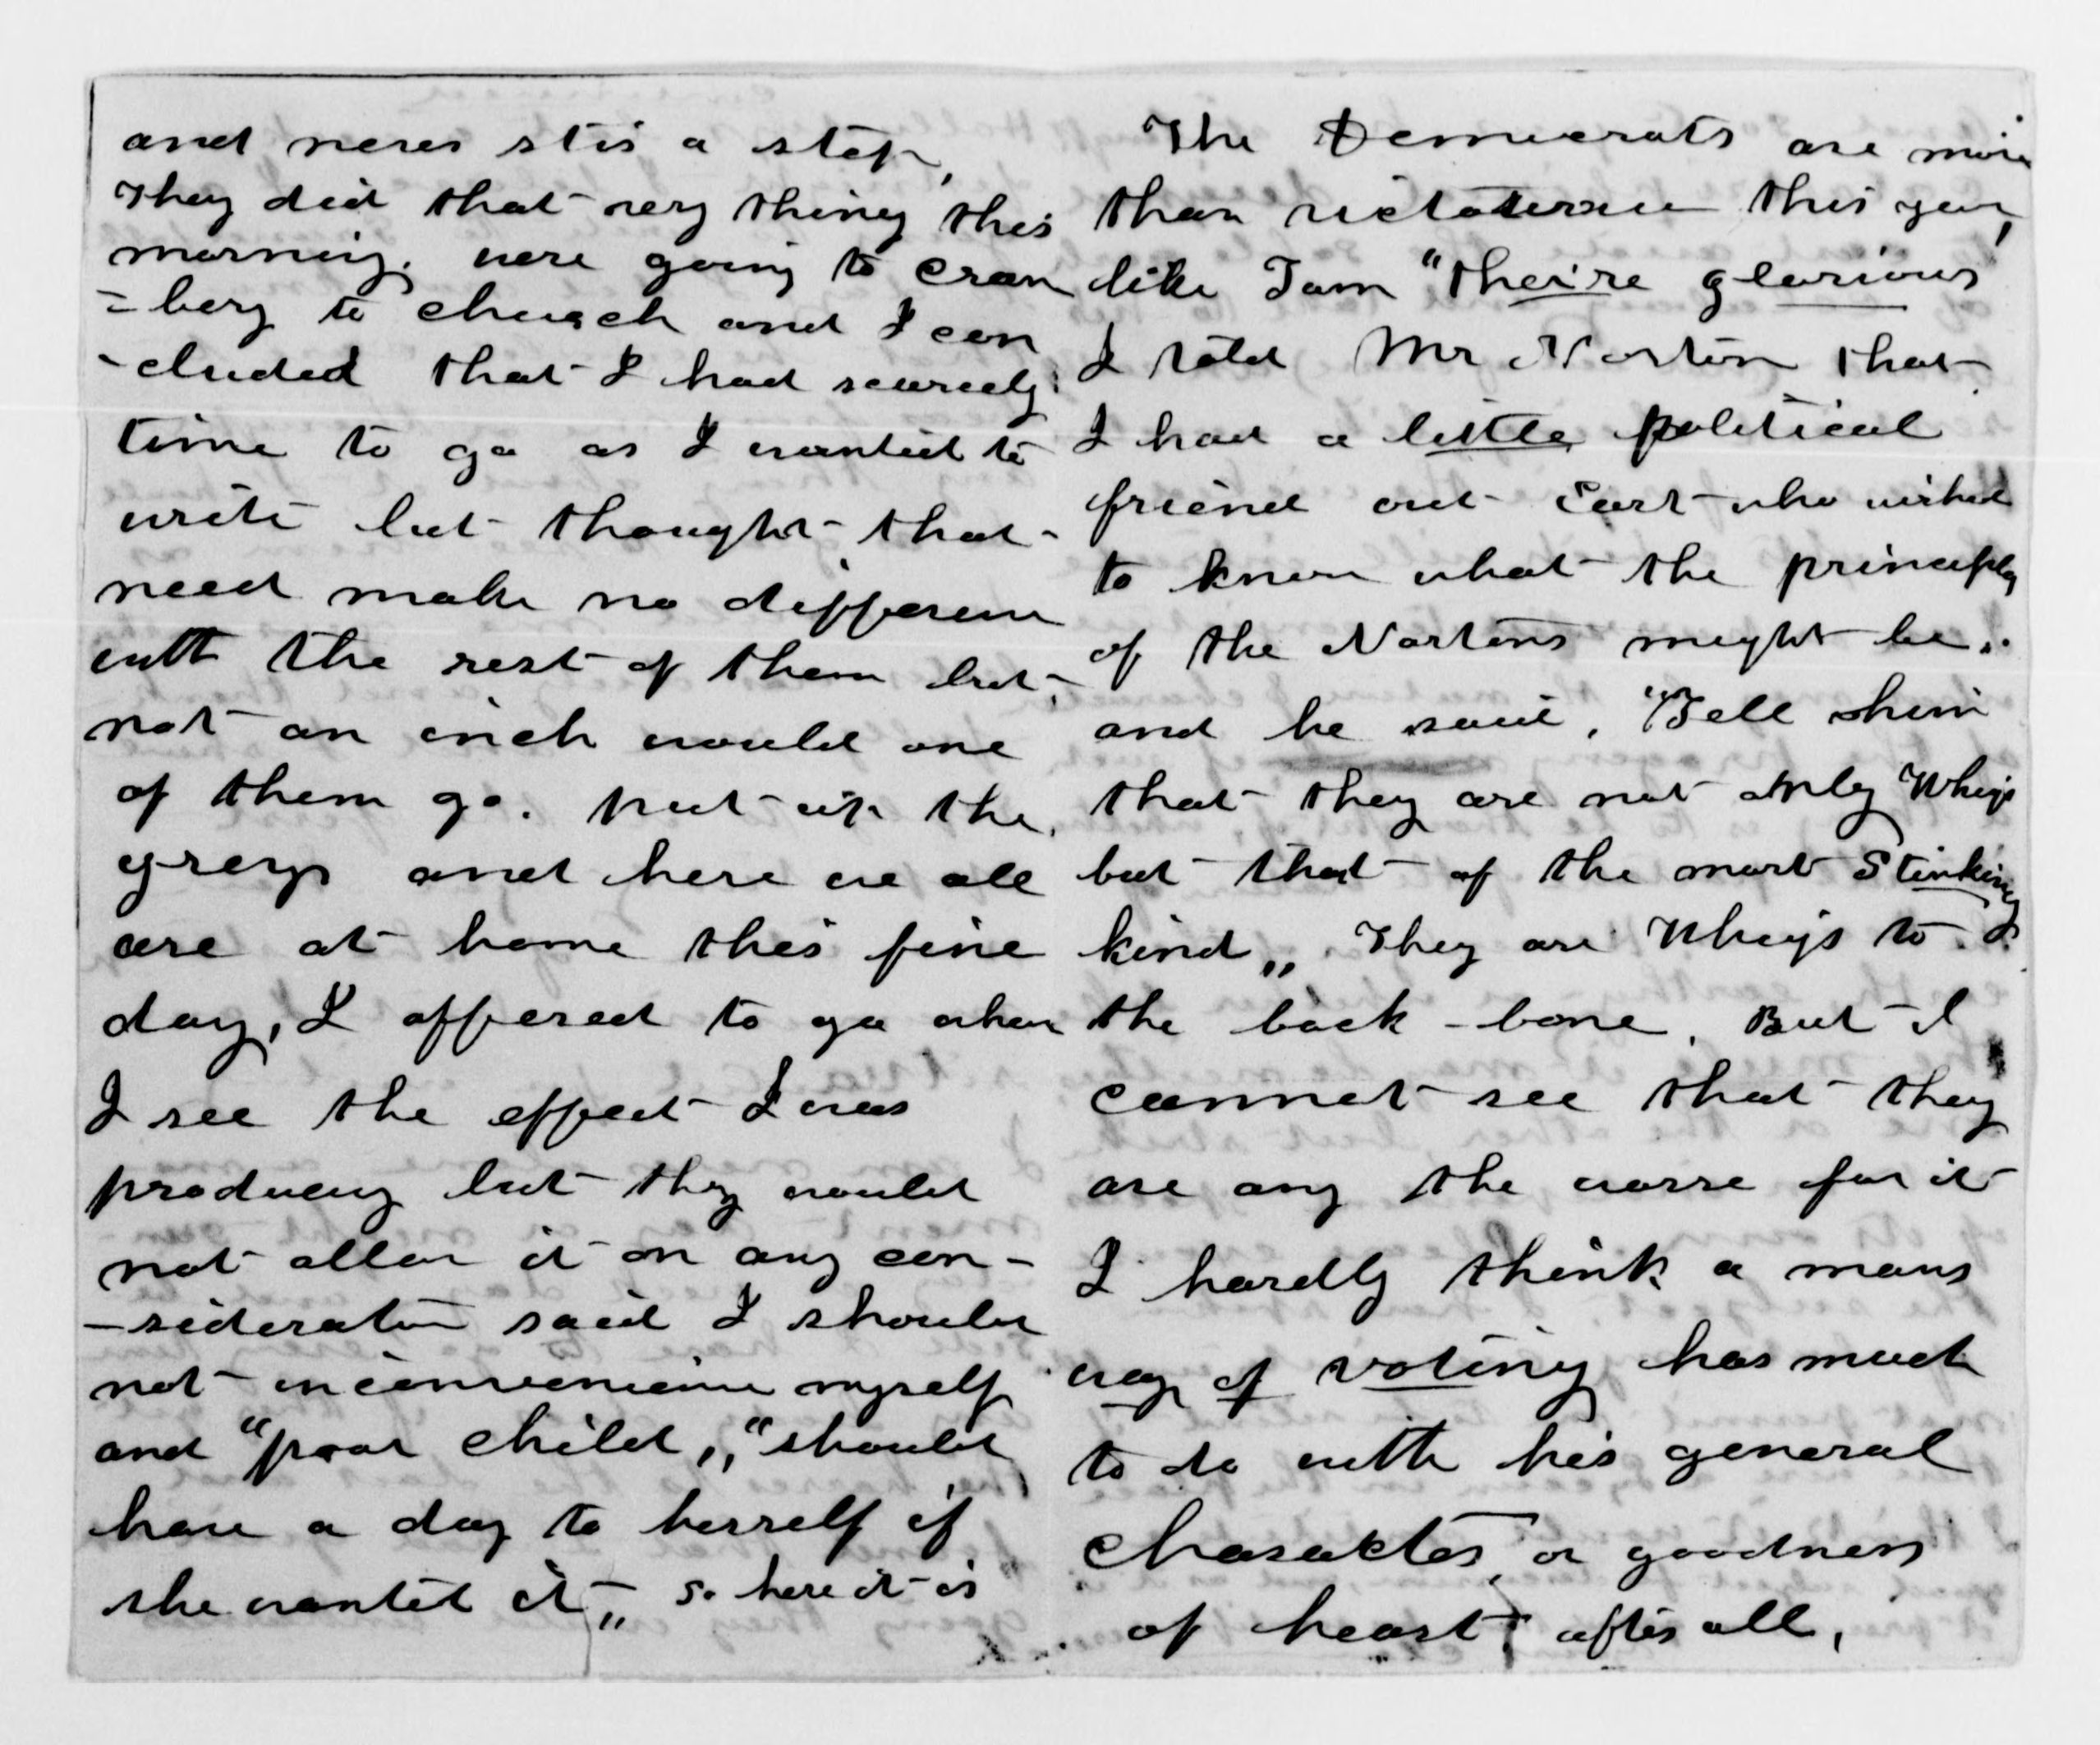 and never stir a step,
They did that very thing this
morning. were going to cran
=bery to church and I con
-cluded that I had scarcely
time to go as I wanted to
write but thought that
need make no difference
with the rest of them but
not an inch would one
of them go. put up the
greys and here we all
are at home this fine
day, I offered to go when
I see the effect I was
produceing but they would
not allow it on any con-
-sideration said I should
not inconvenience myself
and "poor child,, "should
have a day to herself if
she wanted it,, so here it is
The Democrats are more
than victorious this year,
like Tam "theire glorious
I told Mr Norton that
I had a little political
friend out East who wished
to know what the principles
of the Nortons might be.
and he said, "Tell him
that they are not only Whigs
but that of the most Stinking
kind,, They are Whigs to
the back-bone. But I
cannot see that they
are any the worse for it
I hardly think a mans
way of voting has much
to do with his general
character or goodness
of heart, after all,